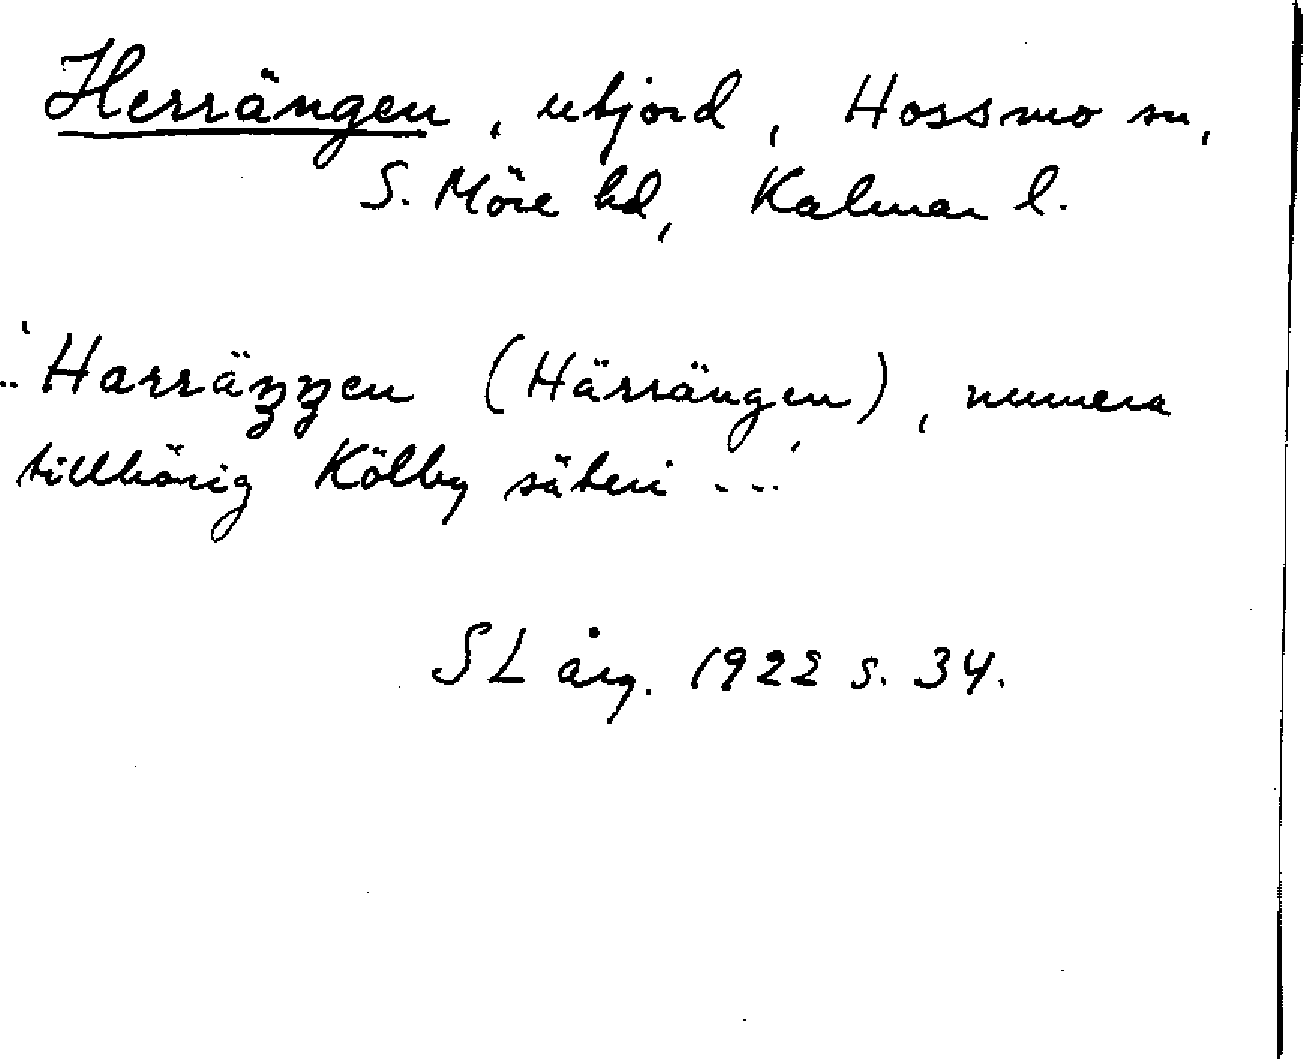 Herrängen, utjord, Hossmo sn,
S. Möre hd, Kalmar l.
'.. Harräzzen (Härrängen), numera
tillhörig Kölby säteri ...'
SL årg. 1922 s. 34.